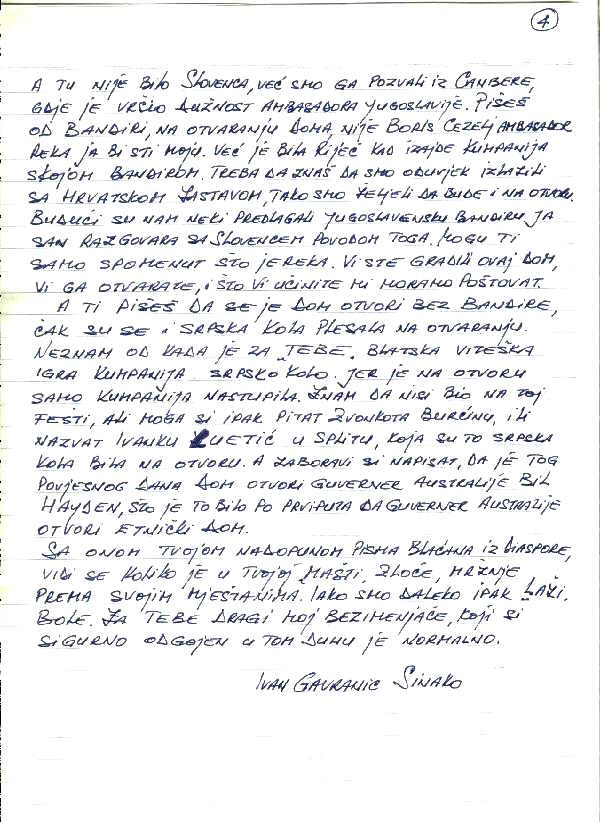 4
A TU NIJE BILO SLOVENCA, VEĆ SMO GA POZVALI IZ CANBERE,
GDJE JE VRŠIO DUŽNOST AMBASADORA JUGOSLAVIJE. PIŠEŠ
OD BANDIRI, NA OTVARANJU DOMA, NIJE BORIS CEZELJ AMBASADOR
REKA JA BI STI MOJU. VEĆ JE BILA RIJEĆ KAD IZAJDE KUMPANIJA
SKOJOM BANDIROM. TREBA DA ZNAŠ DA SMO ODUVJEK IZLAZILI
SA HRVATSKOM ZASTAVOM, TAKO SMO ŽELJELI DA BUDE I NA OTVORU.
BUDUĆI SU NAM NEKI PREDLAGALI JUGOSLAVENSKU BANDIRU JA
SAN RAZGOVARA SA SLOVENCEM POVODOM TOGA. MOGU TI
SAMO SPOMENUT ŠTO JE REKA. VI STE GRADILI OVAJ DOM,
VI GA OTVARATE, I ŠTO VI UČINITE MI MORAMO POŠTOVAT.
A TI PIŠEŠ DA SE JE DOM OTVORI BEZ BANDIRE,
ČAK SU SE I SRPSKA KOLA PLESALA NA OTVARANJU.
NEZNAM OD KADA JE ZA „TEBE„ BLATSKA VITEŠKA
IGRA KUMPANIJA SRPSKO KOLO. JER JE NA OTVORU
SAMO KUMPANIJA NASTUPILA. ZNAM DA NISI BIO NA TOJ
FEŠTI, ALI MOGA SI IPAK PITAT ZVONKOTA BURĆINU, ILI
NAZVAT IVANKU CUETIĆ U SPLITU, KOJA SU TO SRPSKA
KOLA BILA NA OTVORU. A ZABORAVI SI NAPISAT, DA JE TOG
POVJESNOG DANA DOM OTVORI GUVERNER AUSTRALIJE BIL
HAYDEN, ŠTO JE TO BILO PO PRVI PUTA DA GUVERNER AUSTRALIJE
OTVORI ETNIČKI DOM.
SA ONOM TVOJOM NADOPUNOM PISMA BLAĆANA IZ DIASPORE,
VIDI SE KOLIKO JE U TVOJOJ MAŠTI, ZLOĆE, MRŽNJE
PREMA SVOJIM MJEŠTANIMA. IAKO SMO DALEKO IPAK LAŽI,
BOLE. ZA TEBE DRAGI MOJ BEZIMENJAČE, KOJI SI
SIGURNO ODGOJEN U TOM DUHU JE NORMALNO.
IVAN GAVRANIC SINAKO